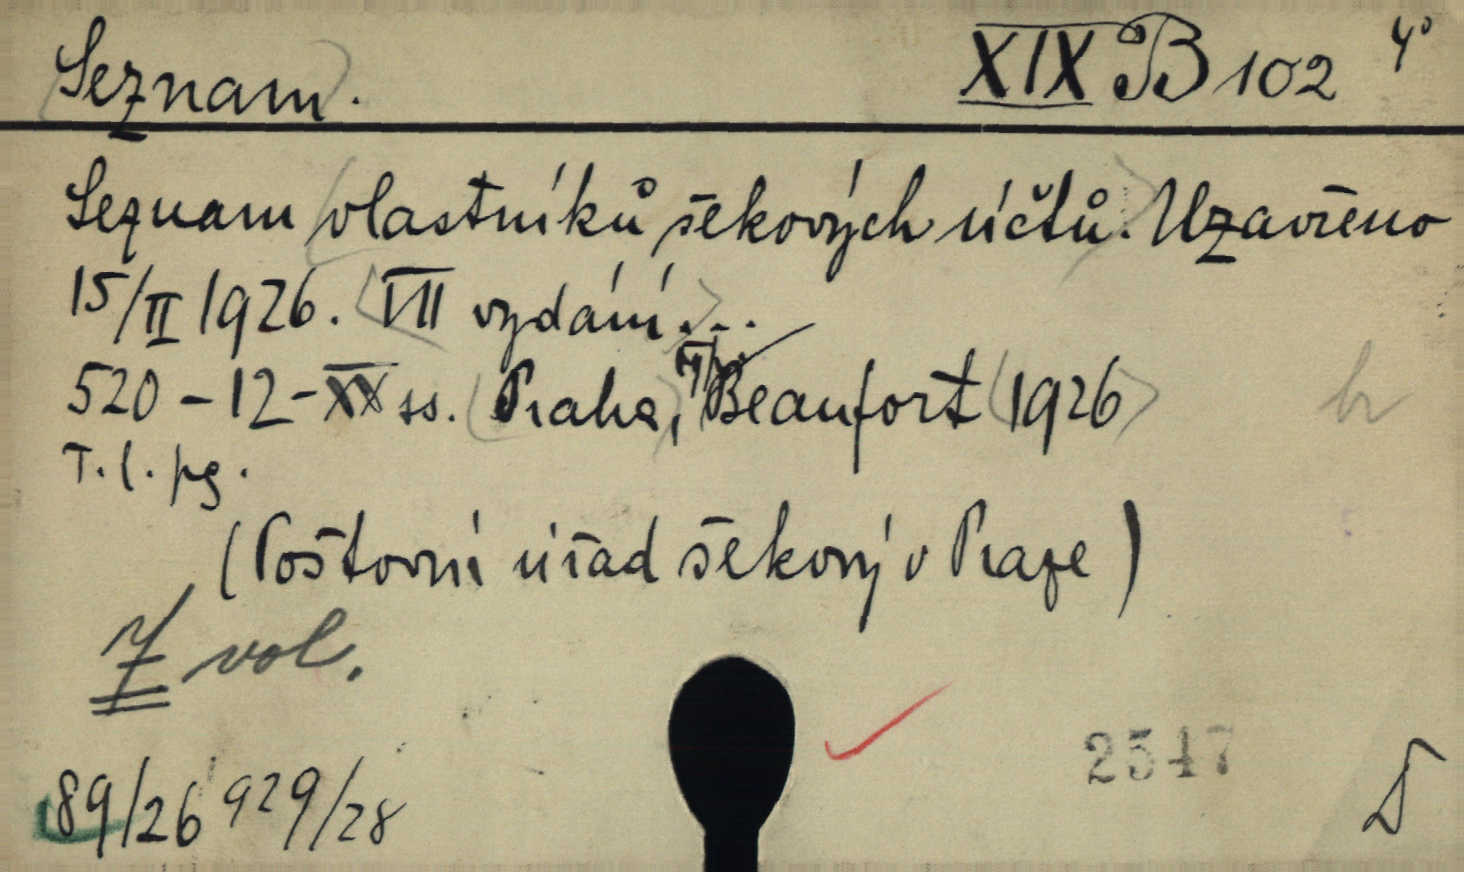 Seznam.
XIX B 102 4°
Seznam vlastníků šekových účtů. Uzavřeno
15/II 1926. VII vydání...
520 - 12 - XX ss. Praha, Beaufort 1926
T. l. pg.
(Poštovní úřad šekový v Praze)
7 vol.
2547
89/26 929/28